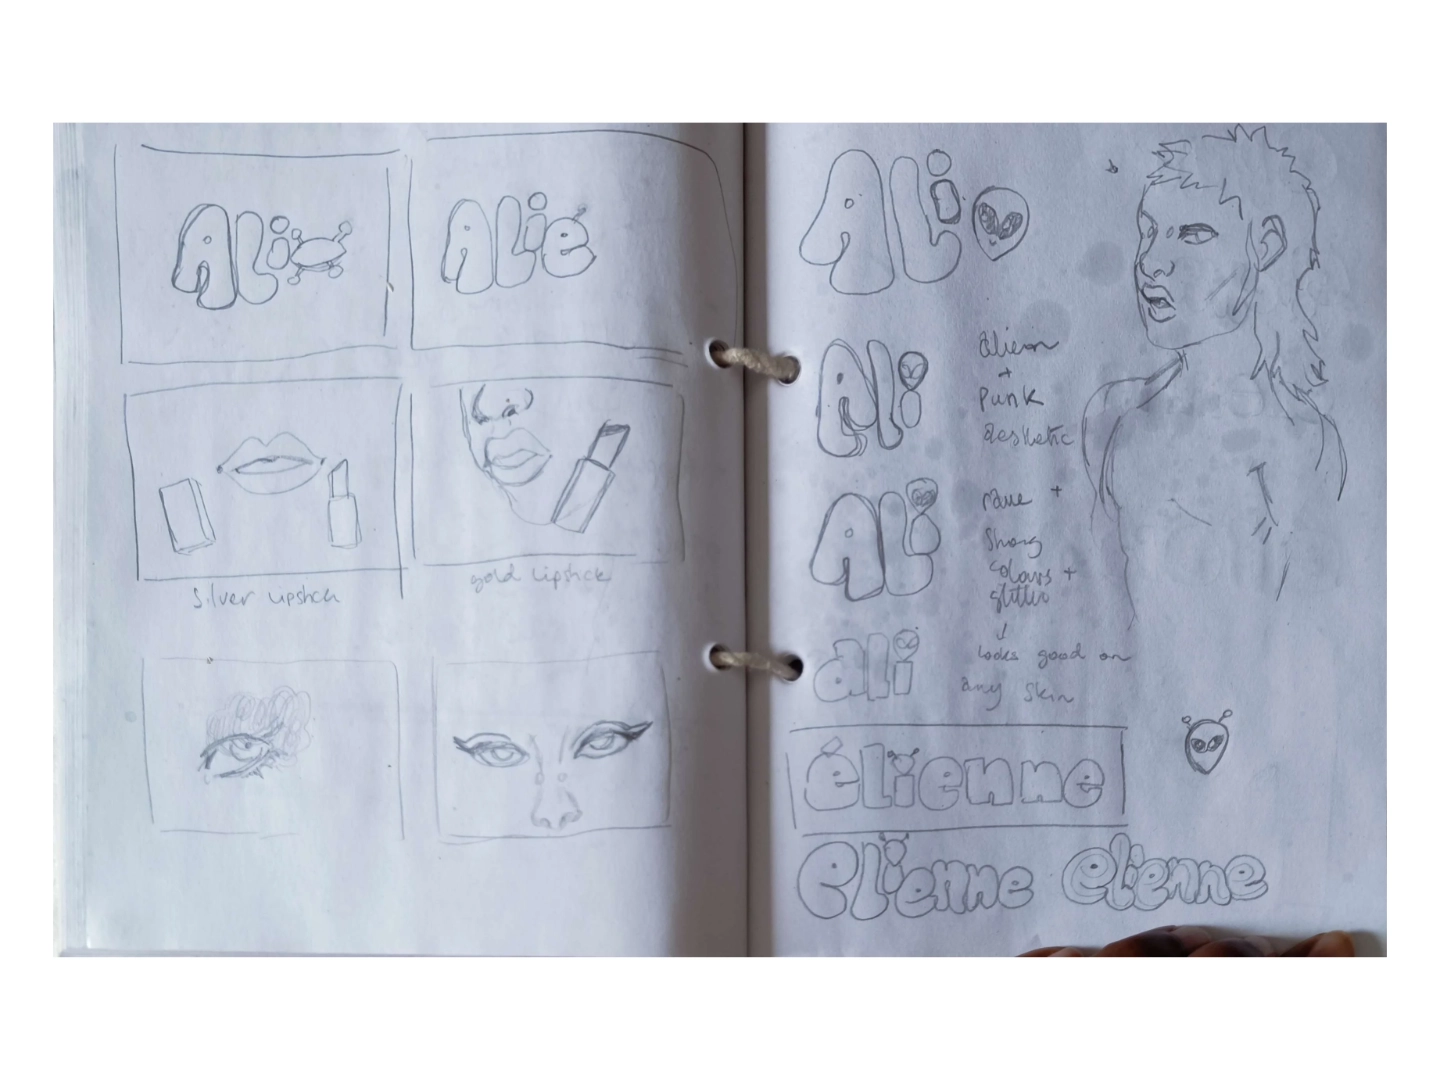 ALi
ALié
Silver lipstick
gold lipstick
ALi
ALi
ALi
ali
alien
+
Punk
aesthetic
rave +
Strong
colours +
glitter
↓
looks good on
any skin
élienne
élienne
élienne